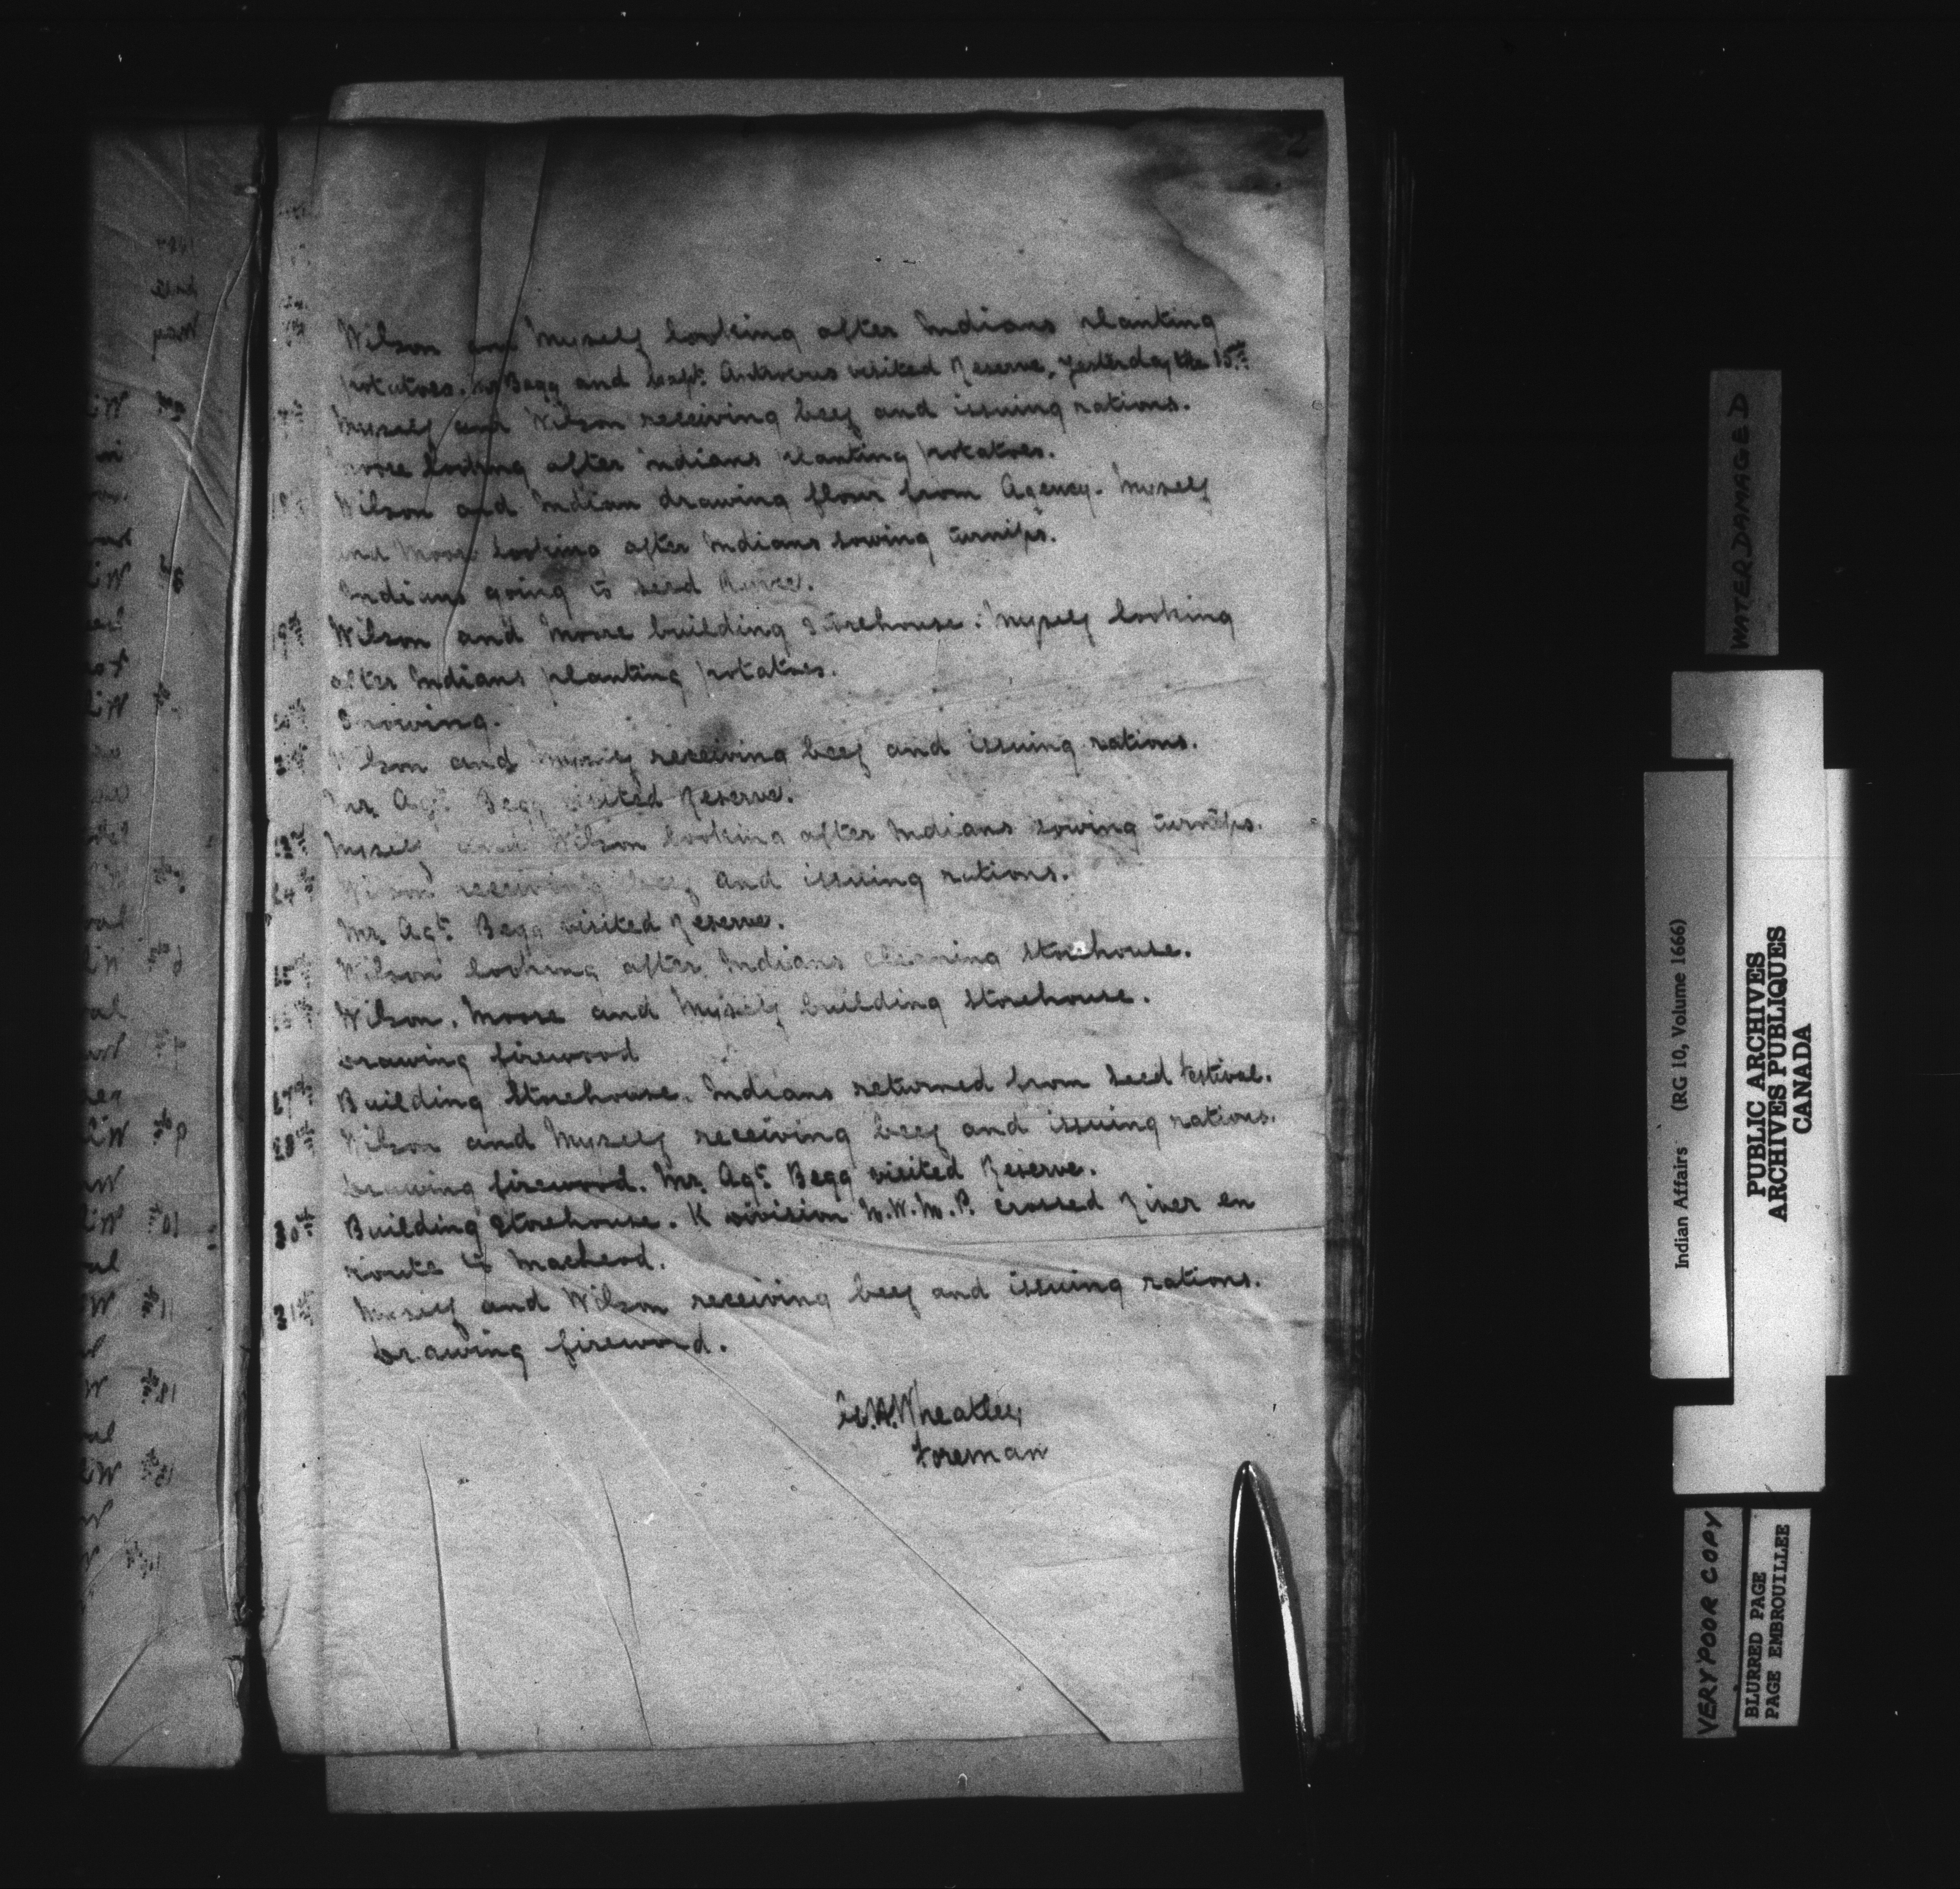 2
Wilson and Myself looking after Indians planting
potatoes. Mr Begg and Capt. Antrobus visited Reserve, yesterday the 15th
Myself and Wilson receiving beef and issuing rations.
Moore looking after Indians planting potatoes.
18 Wilson and Indian drawing flour from Agency. Myself
and Moore looking after Indians sowing turnips.
Indians going to
19th Wilson and Moore building Storehouse. Myself looking
after Indians planting potatoes.
20th Snowing.
21st Wilson and Myself receiving beef and issuing rations.
Mr. Agt. Begg visited Reserve.
Myself and Wilson looking after Indians sowing turnips.
24th Wilson receiving beef and issuing rations.
Mr. Agt. Begg visited Reserve.
25th Wilson looking after Indians cleaning storehouse.
26th Wilson, Moore and Myself building storehouse.
Drawing firewood
27th Building Storehouse. Indians returned from Seed Festival.
28th Wilson and Myself receiving beef and issuing rations.
Drawing firewood. Mr. Agt. Begg visited Reserve.
30th Building Storehouse. K Division N.W.M.P. crossed River en
route to Macleod.
31st Myself and Wilson receiving beef and issuing rations.
Drawing firewood.
Wheatley
Foreman
WATERDAMAGED
Indian Affairs (RG 10, Volume 1666)
PUBLIC ARCHIVES
ARCHIVES PUBLIQUES
CANADA
VERY POOR COPY
BLURRED PAGE
PAGE EMBROUILLEE